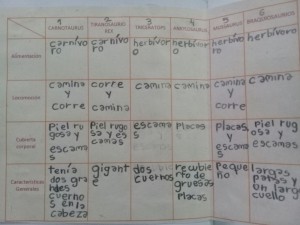 1 2 3 4 5 6
CARNOTAURUS TIRANOSAURUS REX TRICERATOPS BRAQUIOSAURUS
Alimentación carnívoro carnívoro herbívoro herbívoro herbívoro herbívoro
Locomoción camina y corre corre y camina camina camina camina y corre camina
Cubierta corporal Piel rugosa y escamas Piel rugosa y escamas escamas Placas Placas y escamas Piel rugosa y escamas
Características Generales tenía dos grandes cuernos en la cabeza gigante dos cuernos recubierto de gruesas Placas Pequeno largas patas y un largo cuello